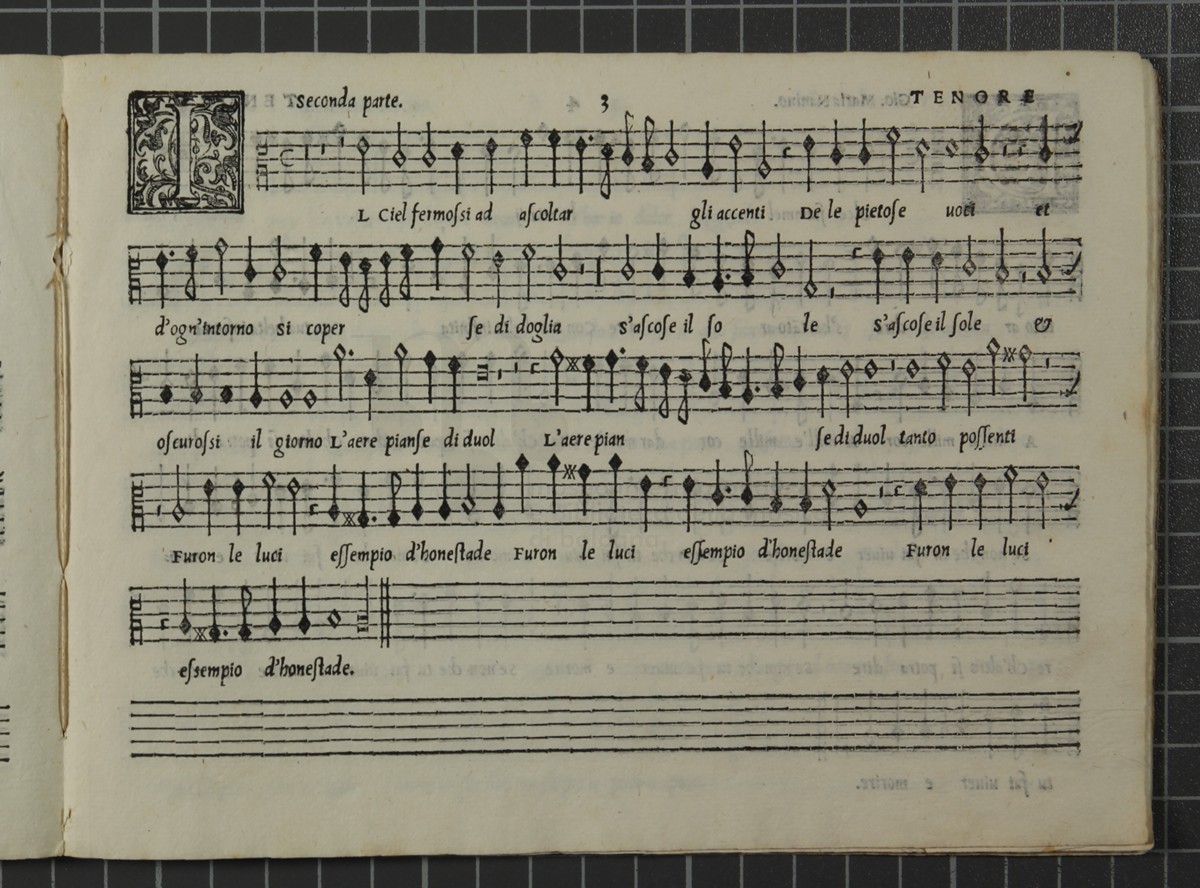 Seconda parte. 3 TENORE
I
L Ciel fermoſsi ad aſcoltar gli accenti De le pietoſe uoci et
d'ogn'intorno Si coper ſe di doglia S'aſcoſe il ſo le S'aſcoſe il ſole &
oſcuroſsi il giorno L'aere pianſe di duol L'aere pian ſe di duol tanto poſſenti
Furon le luci eſſempio d'honeſtade Furon le luci eſſempio d'honeſtade Furon le luci
eſsempio d'honeſtade.